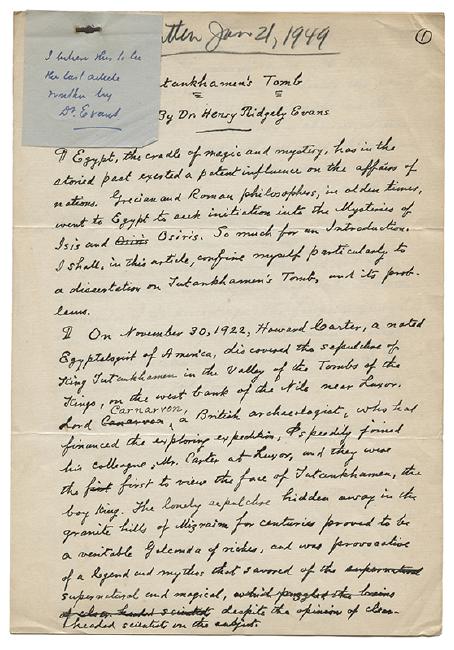 I believe this to be
the last article
written by
Dr. Evans
written Jan 21, 1949
1
Tutankhamen's Tomb
By Dr Henry Ridgely Evans
¶ Egypt, the cradle of magic and mystery, has in the
storied past exerted a patent influence on the affairs of
nations. Grecian and Roman philosophers, in olden times,
went to Egypt to seek initiation into the Mysteries of
Isis and Osiris Osiris. So much for an Introduction.
I shall, in this article, confine myself particularly to
a dissertation on Tutankhamen's Tomb, and its prob-
lems.
¶ On November 30, 1922, Howard Carter, a noted
Egyptologist of America, discovered the sepulchre of
King Tutankhamen in the Valley of the Tombs of the
Kings, on the west bank of the Nile near Luxor.
Carnarvon,
Lord Canarvon, a British archaeologist, who had
financed the exploring expedition, speedily joined
his colleague, Mr. Carter at Luxor, and they were
the first first to view the face of Tutankhamen, the
boy King. The lonely sepulchre hidden away in the
granite hills of Mizraim for centuries proved to be
a veritable Golconda of riches, and was provocative
of a legend and mythos that savored of the supernatural
supernatural and magical, which puzzled the brains
of clear headed scientist despite the opinion of clear-
headed scientist on the subject.